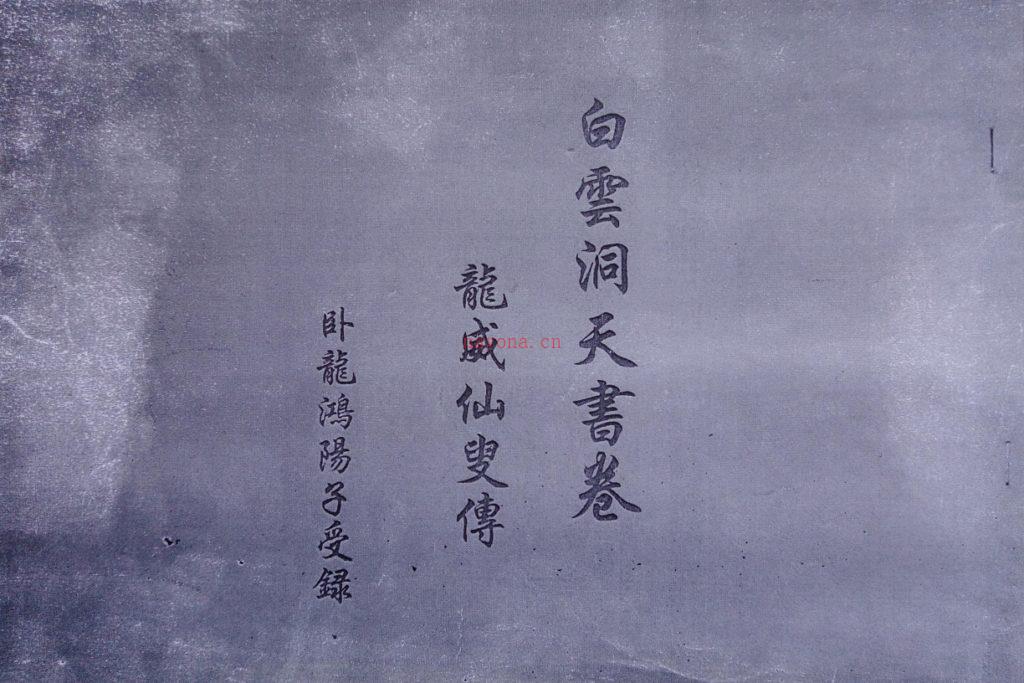 白雲洞天書卷
龍威仙叟傳
卧龍鴻陽子受録